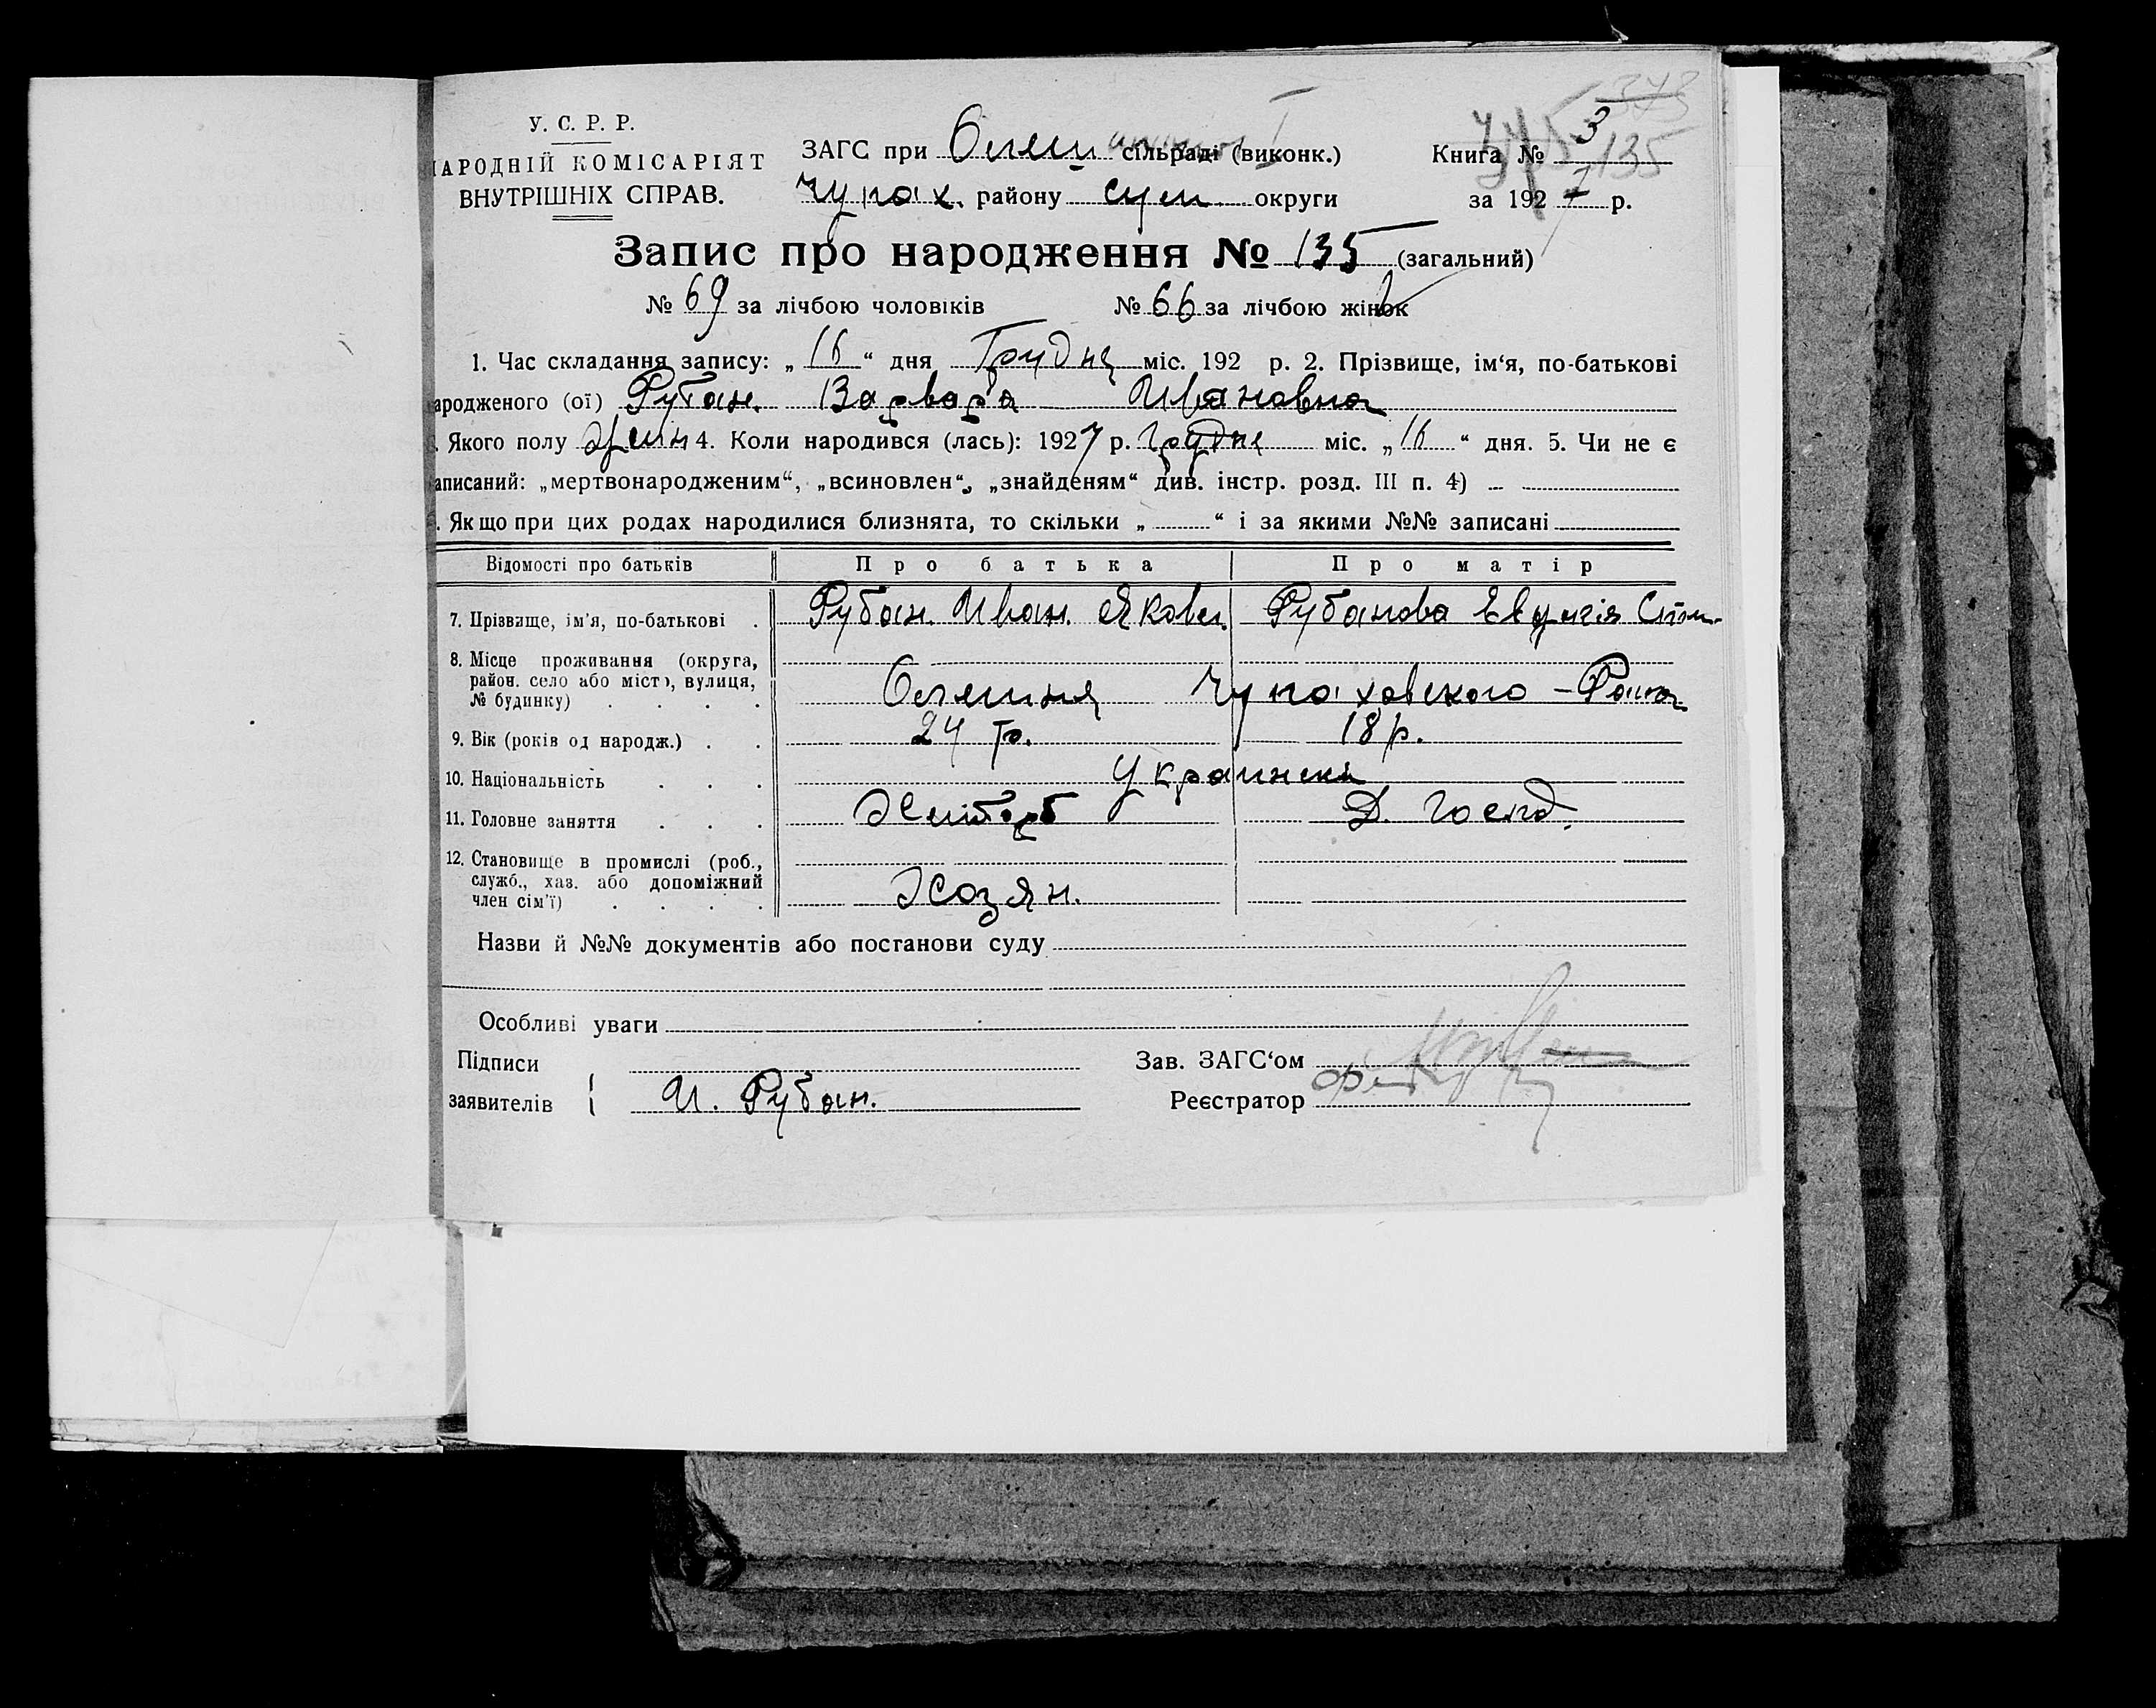 373
У. С. Р. Р.
НАРОДНІЙ КОМІСАРІЯТ
ВНУТРІШНІХ СПРАВ.
ЗАГС при Олеш сільраді (виконк.)
Чупах. району Сум. округи
Книга № 3 135
за 1927 р.
Запис про народження № 135 (загальний)
№ 69 за лічбою чоловіків № 66 за лічбою жінок
1. Час складання запису: „ 16 “ дня Грудня міс. 192 р. 2. Прізвище, ім‘я, по-батькові
ародженого (ої) Рубан. Варвара Ивановна
. Якого полу жін 4. Коли народився (лась): 1927 р. Грудня міс. „ 16 “ дня. 5. Чи не є
аписаний: „мертвонародженим“, „всиновлен“, „знайденям“ див. інстр. розд. III п. 4)
. Якщо при цих родах народилися близнята, то скільки „ “ і за якими №№ записані
Відомості про батьків Про батька Про матір
7. Прізвище, ім‘я, по-батькові . Рубан. Иван. Яковл. Рубанова Евдокія Степ.
8. Місце проживання (округа,
район. село або місто, вулиця,
№ будинку) . . . . Олешня Чупаховского - Раиона
9. Вік (років од народж.) . . 24 р. 18 р.
10. Національність . . . Украинськ
11. Головне заняття . . . Хлібороб Д. Госпд.
12. Становище в промислі (роб.,
служб., хаз. або допоміжний
член сім‘ї) . . . . Хозян.
Назви й №№ документів або постанови суду
Особливі уваги
Підписи Зав. ЗАГС‘ом
заявителів И. Рубан. Реєстратор